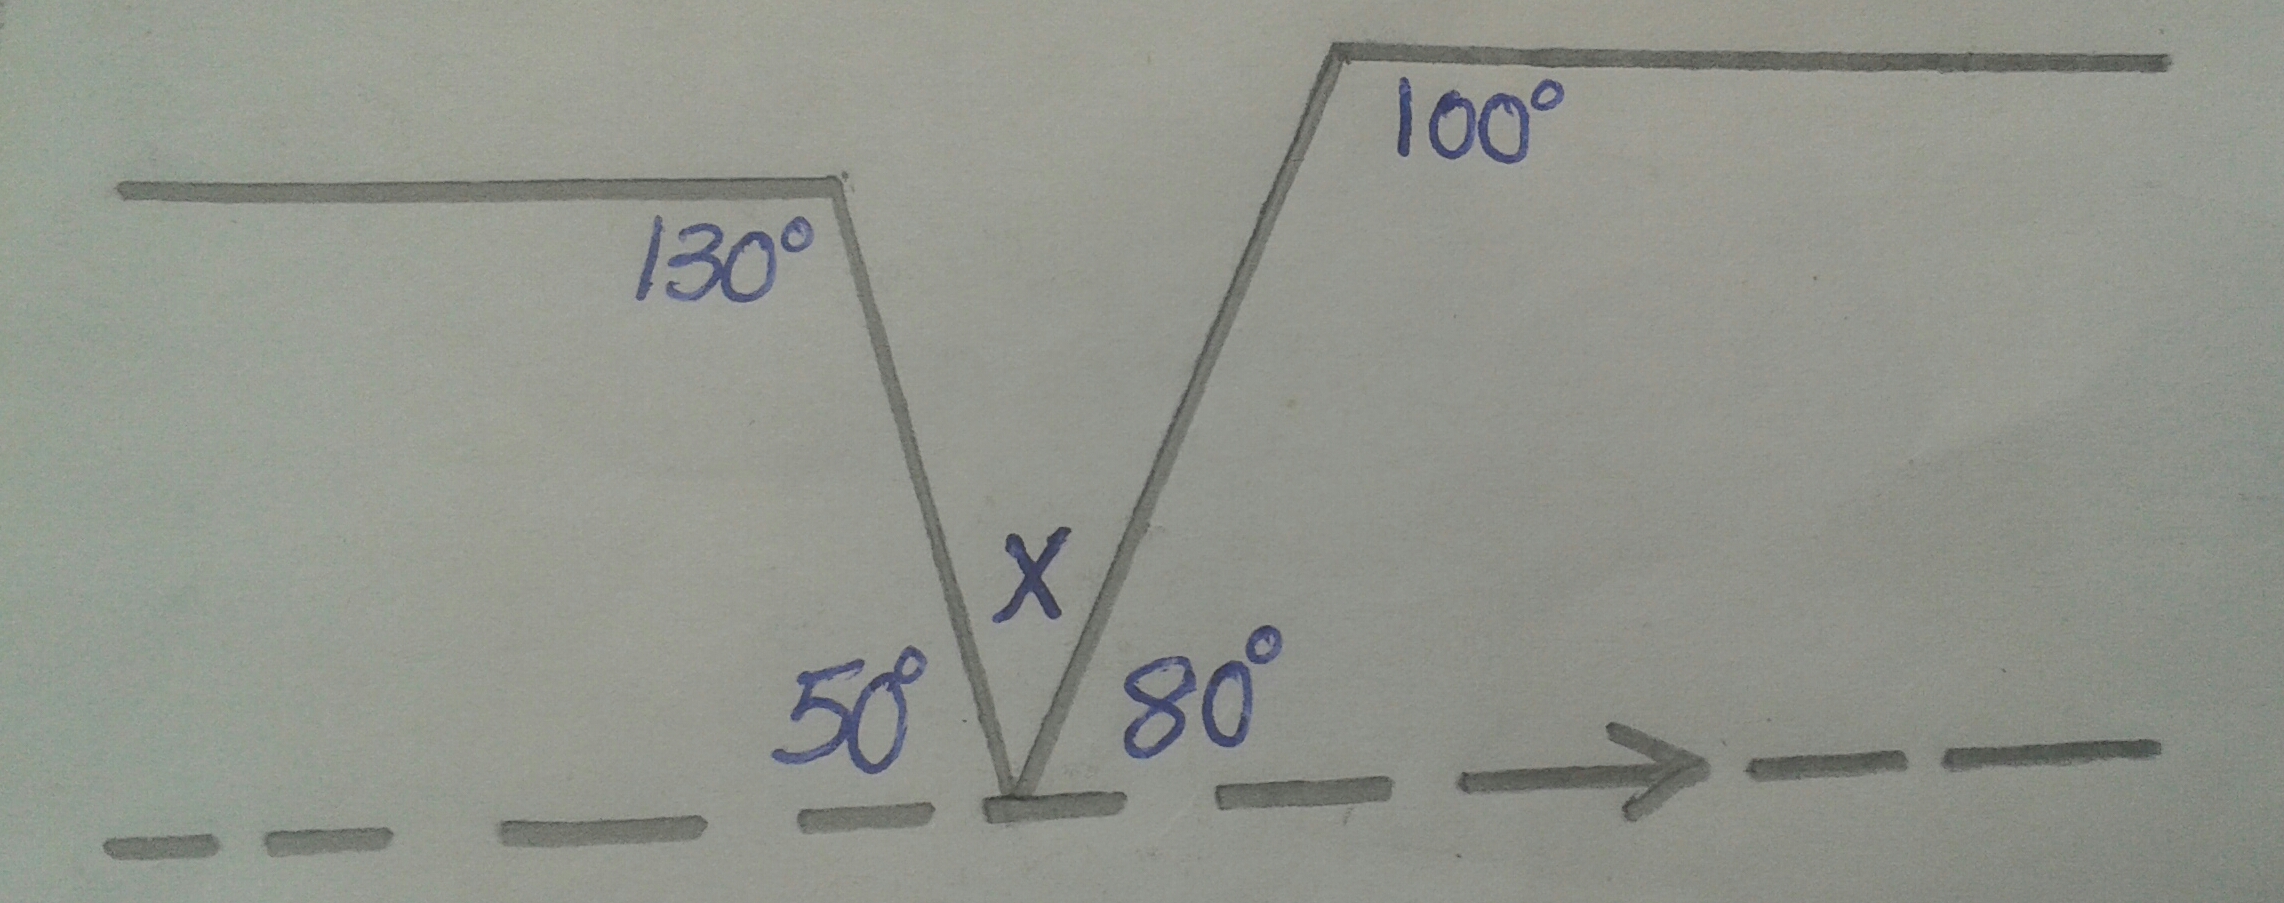 100°
130°
X
50°
80°